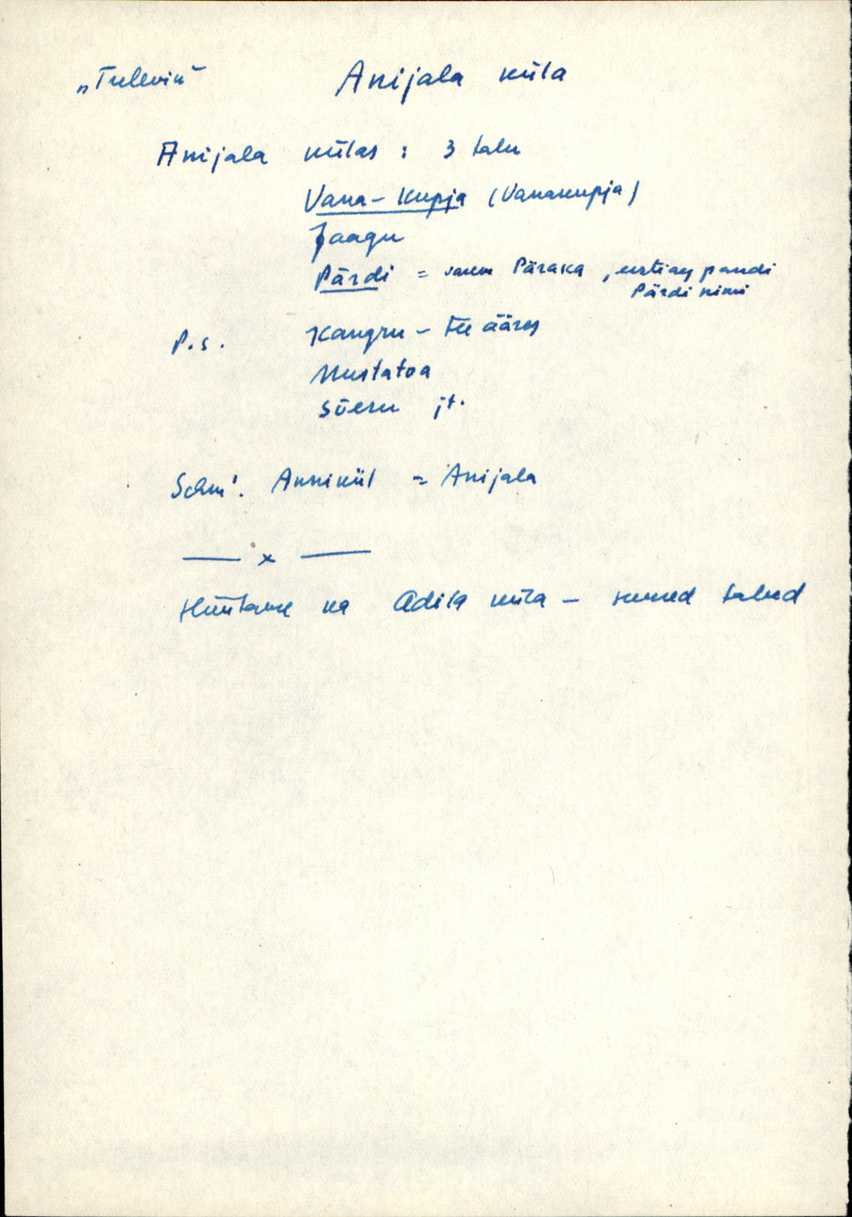 „Tulevik” Anijala küla
Anijala külas : 3 talu
Vana-Kupja (Vanakupja)
Jaagu
Pärdi = varem Päraka, eestiaeg pandi
Pärdi nimi
P.s. Kangru - tee ääres
Mustatoa
Sõeru jt.
Schm'. Anniküll = Anijala
— x —
Hüütakse ka Adila küla - suured talud